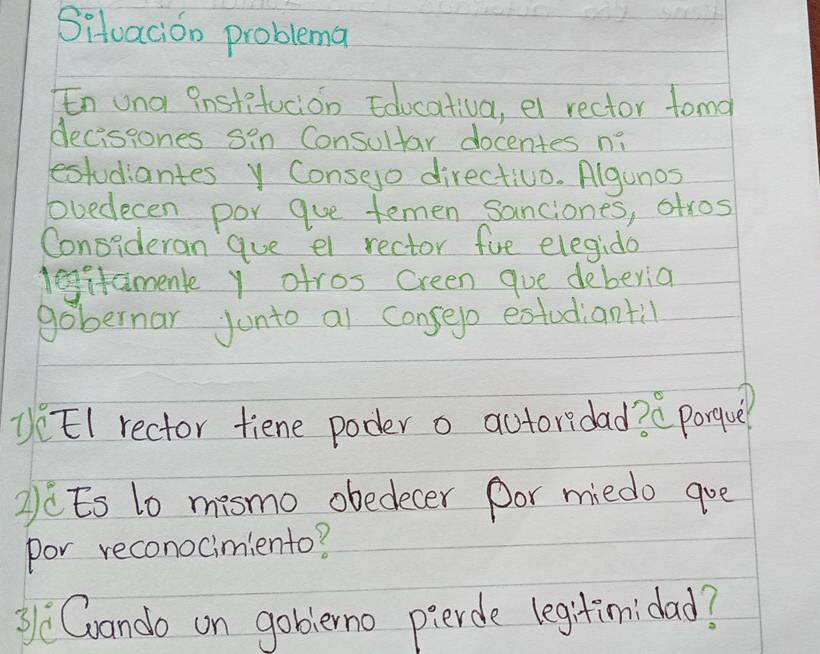 Situación problema
En una institución Educativa, el rector toma
decisiones sin Consultar docentes ni
estudiantes y Consejo directivo. Algunos
obedecen por que temen sanciones, otros
Consideran que el rector fue elegido
legitamente y otros Creen que deberia
gobernar junto al consejo estudiantil
1)¿El rector tiene poder o autoridad?¿Porqué?
2)¿Es lo mismo obedecer por miedo que
por reconocimiento?
3)¿Cuando un gobierno pierde legitimidad?